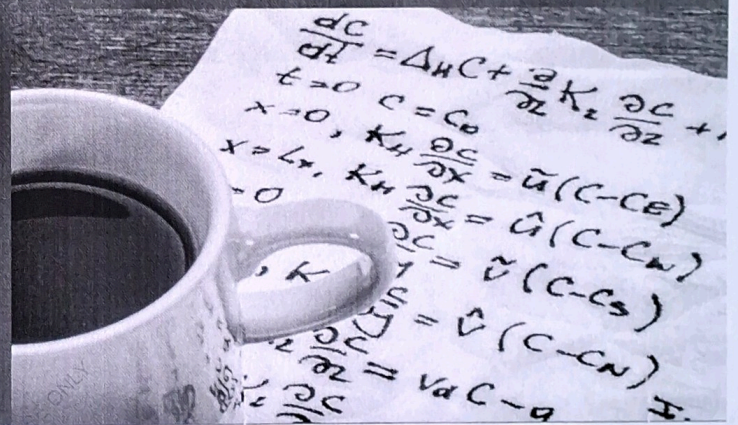 dC/dt = Δ_H C + ∂/∂z K_z ∂C/∂z +
t=0 C=C₀
x=0, K_H ∂C/∂x = ũ(C-C_E)
x=Lₓ, K_H ∂C/∂x = û(C-C_W)
=0 ∂C = ṽ(C-C_S)
, K = v̂(C-C_N)
∂C/∂z = v_d C-q
∂C
ONLY